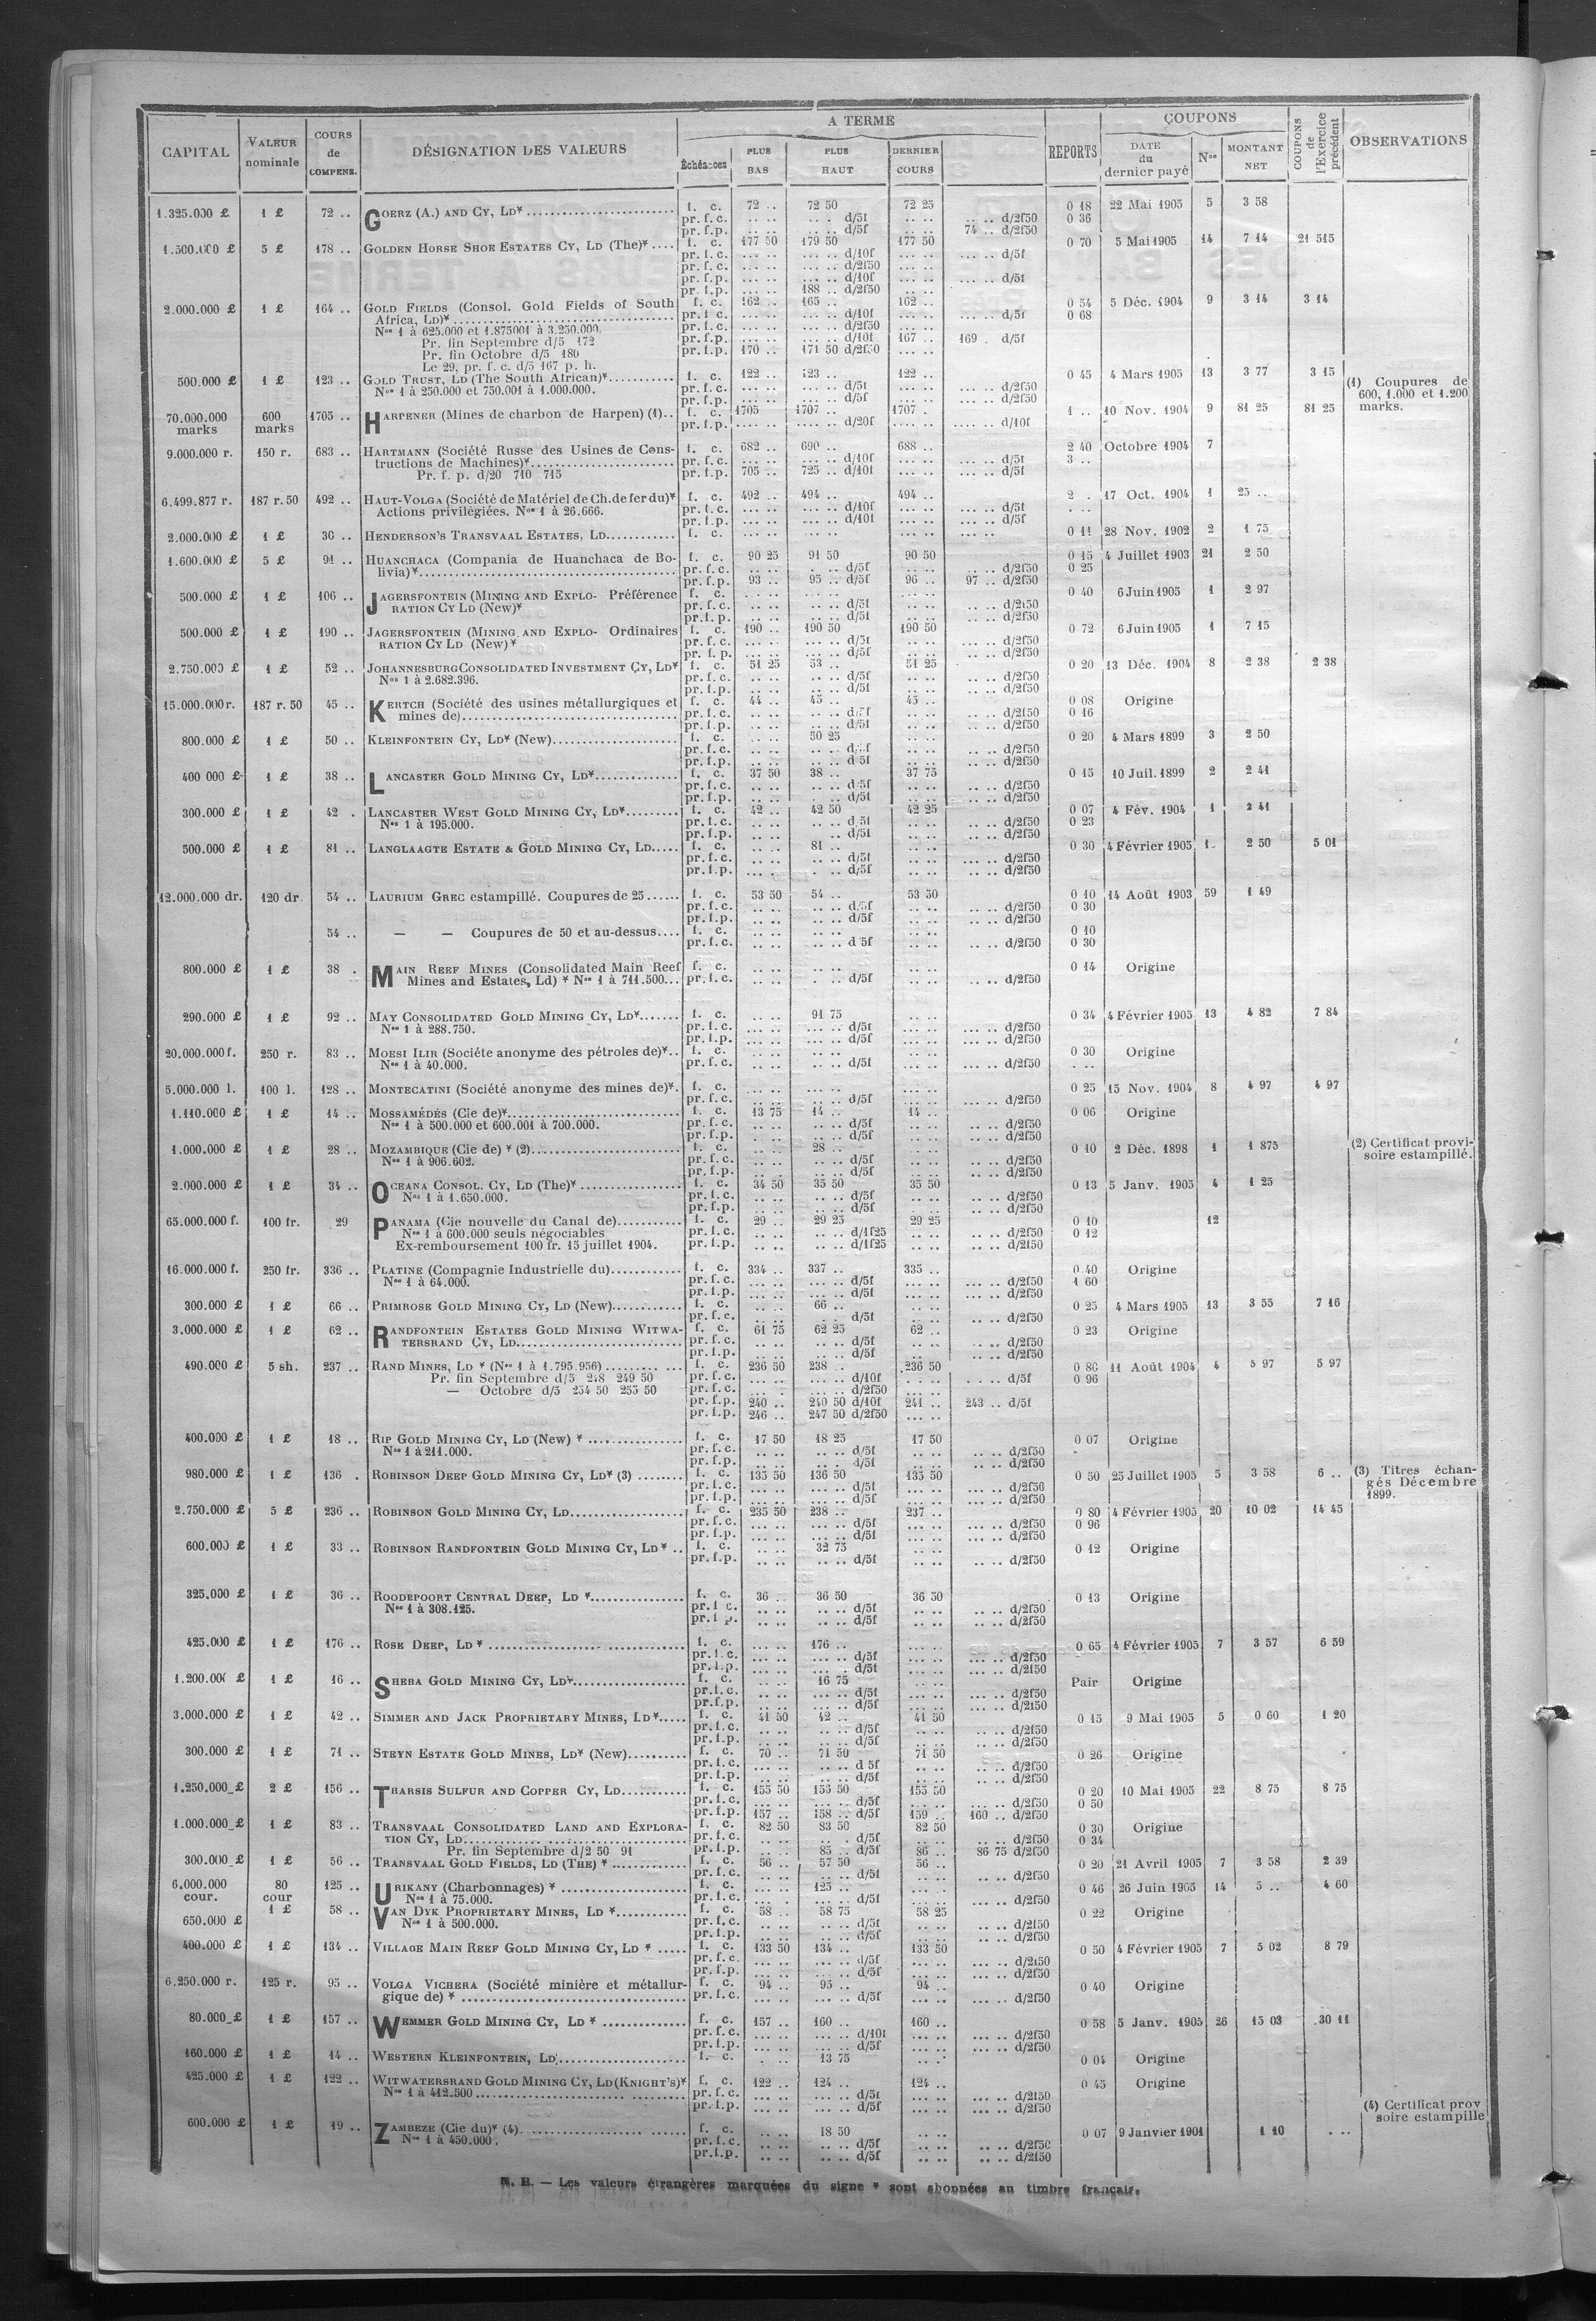 CAPITAL | VALEUR nominale | COURS de COMPENS. | DÉSIGNATION DES VALEURS | A TERME | REPORTS | COUPONS | COUPONS de l'Exercice précédent | OBSERVATIONS
Échéances | PLUS BAS | PLUS HAUT | DERNIER COURS | DATE du dernier payé | Nos | MONTANT NET
1.325.000 £ | 1 £ | 72 .. | GOERZ (A.) AND CY, LD* | f. c. | 72 .. | 72 50 | 72 25 | 0 18 | 22 Mai 1905 | 5 | 3 58
pr. f. c. | .. .. | d/5f | .. .. | d/2f50 | 0 36
pr. f. p. | .. .. | d/5f | 74 .. d/2f50
1.500.000 £ | 5 £ | 178 .. | GOLDEN HORSE SHOE ESTATES CY, LD (The)* | f. c. | 177 50 | 179 50 | 177 50 | 0 70 | 5 Mai 1905 | 14 | 7 14 | 21 515
pr. f. c. | d/10f | d/5f
pr. f. c. | d/2f50
pr. f. p. | d/10f | d/5f
pr. f. p. | 188 .. d/2f50
2.000.000 £ | 1 £ | 164 .. | GOLD FIELDS (Consol. Gold Fields of South | f. c. | 162 .. | 165 .. | 162 .. | 0 54 | 5 Déc. 1904 | 9 | 3 14 | 3 14
Africa, LD)* | pr. f. c. | d/10f | d/5f | 0 68
Nos 1 à 625.000 et 1.875001 à 3.250.000. | pr. f. c. | d/2f50
Pr. fin Septembre d/5 172 | pr. f. p. | d/10f | 167 .. | 169 . d/5f
Pr. fin Octobre d/5 180 | pr. f. p. | 170 .. | 171 50 d/2f50
Le 29, pr. f. c. d/5 167 p. h.
500.000 £ | 1 £ | 123 .. | GOLD TRUST, LD (The South African)* | f. c. | 122 .. | 123 .. | 122 .. | 0 45 | 4 Mars 1905 | 13 | 3 77 | 3 15 | (1) Coupures de
Nos 1 à 250.000 et 750.001 à 1.000.000. | pr. f. c. | d/5f | d/2f50 | 600, 1.000 et 1.200
pr. f. p. | d/5f | d/2f50 | marks.
70.000.000 marks | 600 marks | 1705 .. | HARPENER (Mines de charbon de Harpen) (1) | f. c. | 1705 | 1707 .. | 1707 . | 1 .. | 10 Nov. 1904 | 9 | 81 25 | 81 25
pr. f. p. | d/20f | d/10f
9.000.000 r. | 150 r. | 683 .. | HARTMANN (Société Russe des Usines de Cons- | f. c. | 682 .. | 690 .. | 688 .. | 2 40 | Octobre 1904 | 7
tructions de Machines)* | pr. f. c. | d/10f | d/5f | 3 ..
Pr. f. p. d/20 710 715 | pr. f. p. | 705 .. | 725 .. d/10f | d/5f
6.499.877 r. | 187 r. 50 | 492 .. | HAUT-VOLGA (Société de Matériel de Ch. de fer du)* | f. c. | 492 .. | 494 .. | 494 .. | 2 . | 17 Oct. 1904 | 1 | 25 ..
Actions privilégiées. Nos 1 à 26.666. | pr. f. c. | d/10f | d/5f
pr. f. p. | d/10f | d/5f
2.000.000 £ | 1 £ | 30 .. | HENDERSON'S TRANSVAAL ESTATES, LD | f. c. | 0 11 | 28 Nov. 1902 | 2 | 1 75
1.600.000 £ | 5 £ | 91 .. | HUANCHACA (Compania de Huanchaca de Bo- | f. c. | 90 25 | 91 50 | 90 50 | 0 15 | 4 Juillet 1903 | 21 | 2 50
livia)* | pr. f. c. | d/5f | d/2f50 | 0 25
pr. f. p. | 93 .. | 95 .. d/5f | 96 .. | 97 .. d/2f50
500.000 £ | 1 £ | 106 .. | JAGERSFONTEIN (MINING AND EXPLO- Préférence | f. c. | 0 40 | 6 Juin 1905 | 1 | 2 97
RATION CY LD (New)* | pr. f. c. | d/5f | d/2f50
pr. f. p. | d/5f | d/2f50
500.000 £ | 1 £ | 190 .. | JAGERSFONTEIN (MINING AND EXPLO- Ordinaires | f. c. | 190 .. | 190 50 | 190 50 | 0 72 | 6 Juin 1905 | 1 | 7 15
RATION CY LD (New)* | pr. f. c. | d/5f | d/2f50
pr. f. p. | d/5f | d/2f50
2.750.000 £ | 1 £ | 52 .. | JOHANNESBURG CONSOLIDATED INVESTMENT CY, LD* | f. c. | 51 25 | 53 .. | 51 25 | 0 20 | 13 Déc. 1904 | 8 | 2 38 | 2 38
Nos 1 à 2.682.396. | pr. f. c. | d/5f | d/2f50
pr. f. p. | d/5f | d/2f50
15.000.000 r. | 187 r. 50 | 45 .. | KERTCH (Société des usines métallurgiques et | f. c. | 44 .. | 45 .. | 45 .. | 0 08 | Origine
mines de) | pr. f. c. | d/5f | d/2f50 | 0 16
pr. f. p. | d/5f | d/2f50
800.000 £ | 1 £ | 50 .. | KLEINFONTEIN CY, LD* (New) | f. c. | 50 25 | 0 20 | 4 Mars 1899 | 3 | 2 50
pr. f. c. | d/5f | d/2f50
pr. f. p. | d 5f | d/2f50
400 000 £ | 1 £ | 38 .. | LANCASTER GOLD MINING CY, LD* | f. c. | 37 50 | 38 .. | 37 75 | 0 15 | 10 Juil. 1899 | 2 | 2 41
pr. f. c. | d/5f | d/2f50
pr. f. p. | d/5f | d/2f50
300.000 £ | 1 £ | 42 . | LANCASTER WEST GOLD MINING CY, LD* | f. c. | 42 .. | 42 50 | 42 25 | 0 07 | 4 Fév. 1904 | 1 | 2 41
Nos 1 à 195.000. | pr. f. c. | d 5f | d/2f50 | 0 23
pr. f. p. | d/5f | d/2f50
500.000 £ | 1 £ | 81 .. | LANGLAAGTE ESTATE & GOLD MINING CY, LD | f. c. | 81 .. | 0 30 | 4 Février 1905 | 1. | 2 50 | 5 01
pr. f. c. | d/5f | d/2f50
pr. f. p. | d/5f | d/2f50
12.000.000 dr. | 120 dr. | 54 .. | LAURIUM GREC estampillé. Coupures de 25 | f. c. | 53 50 | 54 .. | 53 50 | 0 10 | 14 Août 1903 | 59 | 1 49
pr. f. c. | d/5f | d/2f50 | 0 30
pr. f. p. | d/5f | d/2f50
54 .. | — — Coupures de 50 et au-dessus | f. c. | 0 10
pr. f. c. | d 5f | d/2f50 | 0 30
800.000 £ | 1 £ | 38 . | MAIN REEF MINES (Consolidated Main Reef | f. c. | 0 14 | Origine
Mines and Estates, Ld) * Nos 1 à 711.500 | pr. f. c. | d/5f | d/2f50
290.000 £ | 1 £ | 92 .. | MAY CONSOLIDATED GOLD MINING CY, LD* | f. c. | 91 75 | 0 34 | 4 Février 1905 | 13 | 4 82 | 7 84
Nos 1 à 288.750. | pr. f. c. | d/5f | d/2f50
pr. f. p. | d/5f | d/2f50
20.000.000 f. | 250 r. | 83 .. | MOESI ILIR (Sociéte anonyme des pétroles de)* | f. c. | 0 30 | Origine
Nos 1 à 40.000. | pr. f. c. | d/5f | d/2f50
5.000.000 l. | 100 l. | 128 .. | MONTECATINI (Société anonyme des mines de)* | f. c. | 0 25 | 15 Nov. 1904 | 8 | 4 97 | 4 97
pr. f. c. | d/5f | d/2f50
1.110.000 £ | 1 £ | 14 .. | MOSSAMÉDÈS (Cie de)* | f. c. | 13 75 | 14 .. | 14 .. | 0 06 | Origine
Nos 1 à 500.000 et 600.001 à 700.000. | pr. f. c. | d/5f | d/2f50
pr. f. p. | d/5f | d/2f50
1.000.000 £ | 1 £ | 28 .. | MOZAMBIQUE (Cie de) * (2) | f. c. | 28 .. | 0 10 | 2 Déc. 1898 | 1 | 1 875 | (2) Certificat provi-
Nos 1 à 906.602. | pr. f. c. | d/5f | d/2f50 | soire estampillé.
pr. f. p. | d/5f | d/2f50
2.000.000 £ | 1 £ | 34 .. | OCEANA CONSOL. CY, LD (The)* | f. c. | 34 50 | 35 50 | 35 50 | 0 13 | 5 Janv. 1905 | 4 | 1 25
Nos 1 à 1.650.000. | pr. f. c. | d/5f | d/2f50
pr. f. p. | d/5f | d/2f50
65.000.000 f. | 100 fr. | 29 | PANAMA (Cie nouvelle du Canal de) | f. c. | 29 .. | 29 25 | 29 25 | 0 10 | 12
Nos 1 à 600.000 seuls négociables | pr. f. c. | d/1f25 | d/2f50 | 0 12
Ex-remboursement 100 fr. 15 juillet 1904. | pr. f. p. | d/1f25 | d/2f50
16.000.000 f. | 250 fr. | 336 .. | PLATINE (Compagnie Industrielle du) | f. c. | 334 .. | 337 .. | 335 .. | 0 40 | Origine
Nos 1 à 64.000. | pr. f. c. | d/5f | d/2f50 | 1 60
pr. f. p. | d/5f | d/2f50
300.000 £ | 1 £ | 66 .. | PRIMROSE GOLD MINING CY, LD (New) | f. c. | 66 .. | 0 25 | 4 Mars 1905 | 13 | 3 55 | 7 16
pr. f. c. | d/5f | d/2f50
3.000.000 £ | 1 £ | 62 .. | RANDFONTEIN ESTATES GOLD MINING WITWA- | f. c. | 61 75 | 62 25 | 62 .. | 0 23 | Origine
TERSRAND CY, LD | pr. f. c. | d/5f | d/2f50
pr. f. p. | d/5f | d/2f50
490.000 £ | 5 sh. | 237 .. | RAND MINES, LD * (Nos 1 à 1.795.956) | f. c. | 236 50 | 238 .. | 236 50 | 0 86 | 11 Août 1904 | 4 | 5 97 | 5 97
Pr. fin Septembre d/5 248 249 50 | pr. f. c. | d/10f | d/5f | 0 96
— Octobre d/5 254 50 255 50 | pr. f. c. | d/2f50
pr. f. p. | 240 .. | 240 50 d/10f | 241 .. | 243 .. d/5f
pr. f. p. | 246 .. | 247 50 d/2f50
400.000 £ | 1 £ | 18 .. | RIP GOLD MINING CY, LD (New) * | f. c. | 17 50 | 18 25 | 17 50 | 0 07 | Origine
Nos 1 à 211.000. | pr. f. c. | d/5f | d/2f50
pr. f. p. | d/5f | d/2f50
980.000 £ | 1 £ | 136 . | ROBINSON DEEP GOLD MINING CY, LD* (3) | f. c. | 135 50 | 136 50 | 135 50 | 0 50 | 25 Juillet 1905 | 5 | 3 58 | 6 .. | (3) Titres échan-
pr. f. c. | d/5f | d/2f50 | gés Décembre
pr. f. p. | d/5f | d/2f50 | 1899.
2.750.000 £ | 5 £ | 236 .. | ROBINSON GOLD MINING CY, LD | f. c. | 235 50 | 238 .. | 237 .. | 0 80 | 4 Février 1905 | 20 | 10 02 | 14 45
pr. f. c. | d/5f | d/2f50 | 0 96
pr. f. p. | d/5f | d/2f50
600.000 £ | 1 £ | 33 .. | ROBINSON RANDFONTEIN GOLD MINING CY, LD * | f. c. | 32 75 | 0 12 | Origine
pr. f. p. | d/5f | d/2f50
325.000 £ | 1 £ | 36 .. | ROODEPOORT CENTRAL DEEP, LD * | f. c. | 36 .. | 36 50 | 36 50 | 0 13 | Origine
Nos 1 à 308.125. | pr. f c. | d/5f | d/2f50
pr. f p. | d/5f | d/2f50
425.000 £ | 1 £ | 176 .. | ROSE DEEP, LD * | f. c. | 176 .. | 0 65 | 4 Février 1905 | 7 | 3 57 | 6 59
pr. f. c. | d/5f | d/2f50
pr. f. p. | d/5f | d/2f50
1.200.000 £ | 1 £ | 16 .. | SHEBA GOLD MINING CY, LD* | f. c. | 16 75 | Pair | Origine
pr. f. c. | d/5f | d/2f50
pr. f. p. | d/5f | d/2f50
3.000.000 £ | 1 £ | 42 .. | SIMMER AND JACK PROPRIETARY MINES, LD* | f. c. | 41 50 | 42 .. | 41 50 | 0 15 | 9 Mai 1905 | 5 | 0 60 | 1 20
pr. f. c. | d/5f | d/2f50
pr. f. p. | d/5f | d/2f50
300.000 £ | 1 £ | 71 .. | STEYN ESTATE GOLD MINES, LD* (New) | f. c. | 70 .. | 71 50 | 71 50 | 0 26 | Origine
pr. f. c. | d 5f | d/2f50
pr. f. p. | d/5f | d/2f50
1.250.000 £ | 2 £ | 156 .. | THARSIS SULFUR AND COPPER CY, LD | f. c. | 155 50 | 155 50 | 155 50 | 0 20 | 10 Mai 1905 | 22 | 8 75 | 8 75
pr. f. c. | d/5f | d/2f50 | 0 50
pr. f. p. | 157 .. | 158 .. d/5f | 159 .. | 160 .. d/2f50
1.000.000 £ | 1 £ | 83 .. | TRANSVAAL CONSOLIDATED LAND AND EXPLORA- | f. c. | 82 50 | 83 50 | 82 50 | 0 30 | Origine
TION CY, LD | pr. f. c. | d/5f | d/2f50 | 0 34
Pr. fin Septembre d/2 50 91 | pr. f. p. | 85 .. d/5f | 86 .. | 86 75 d/2f50
300.000 £ | 1 £ | 56 .. | TRANSVAAL GOLD FIELDS, LD (THE) * | f. c. | 56 .. | 57 50 | 56 .. | 0 20 | 21 Avril 1905 | 7 | 3 58 | 2 39
pr. f. c. | d/5f | d/2f50
6.000.000 cour. | 80 cour | 125 .. | URIKANY (Charbonnages) * | f. c. | 125 .. | 0 46 | 26 Juin 1905 | 14 | 5 .. | 4 60
Nos 1 à 75.000. | pr. f. c. | d/5f | d/2f50
650.000 £ | 1 £ | 58 .. | VAN DYK PROPRIETARY MINES, LD * | f. c. | 58 .. | 58 75 | 58 25 | 0 22 | Origine
Nos 1 à 500.000. | pr. f. c. | d/5f | d/2f50
pr. f. p. | d/5f | d/2f50
400.000 £ | 1 £ | 134 .. | VILLAGE MAIN REEF GOLD MINING CY, LD * | f. c. | 133 50 | 134 .. | 133 50 | 0 50 | 4 Février 1905 | 7 | 5 02 | 8 79
pr. f. c. | d/5f | d/2f50
pr. f. p. | d/5f | d/2f50
6.250.000 r. | 125 r. | 95 .. | VOLGA VICHERA (Société minière et métallur- | f. c. | 94 .. | 95 .. | 94 .. | 0 40 | Origine
gique de) * | pr. f. c. | d/5f | d/2f50
80.000 £ | 1 £ | 157 .. | WEMMER GOLD MINING CY, LD * | f. c. | 157 .. | 160 .. | 160 .. | 0 58 | 5 Janv. 1905 | 26 | 15 03 | 30 11
pr. f. c. | d/10f | d/2f50
pr. f. p. | d/5f | d/2f50
160.000 £ | 1 £ | 14 .. | WESTERN KLEINFONTEIN, LD | f. c. | 13 75 | 0 04 | Origine
425.000 £ | 1 £ | 122 .. | WITWATERSRAND GOLD MINING CY, LD (KNIGHT'S)* | f. c. | 122 .. | 124 .. | 124 .. | 0 45 | Origine
Nos 1 à 412.500 | pr. f. c. | d/5f | d/2f50
pr. f. p. | d/5f | d/2f50 | (4) Certificat prov
soire estampille
600.000 £ | 1 £ | 19 .. | ZAMBEZE (Cie du)* (4) | f. c. | 18 50 | 0 07 | 9 Janvier 1901 | 1 10
Nos 1 à 450.000. | pr. f. c. | d/5f | d/2f50
pr. f. p. | d/5f | d/2f50
N. B. — Les valeurs étrangères marquées du signe * sont abonnées au timbre français.